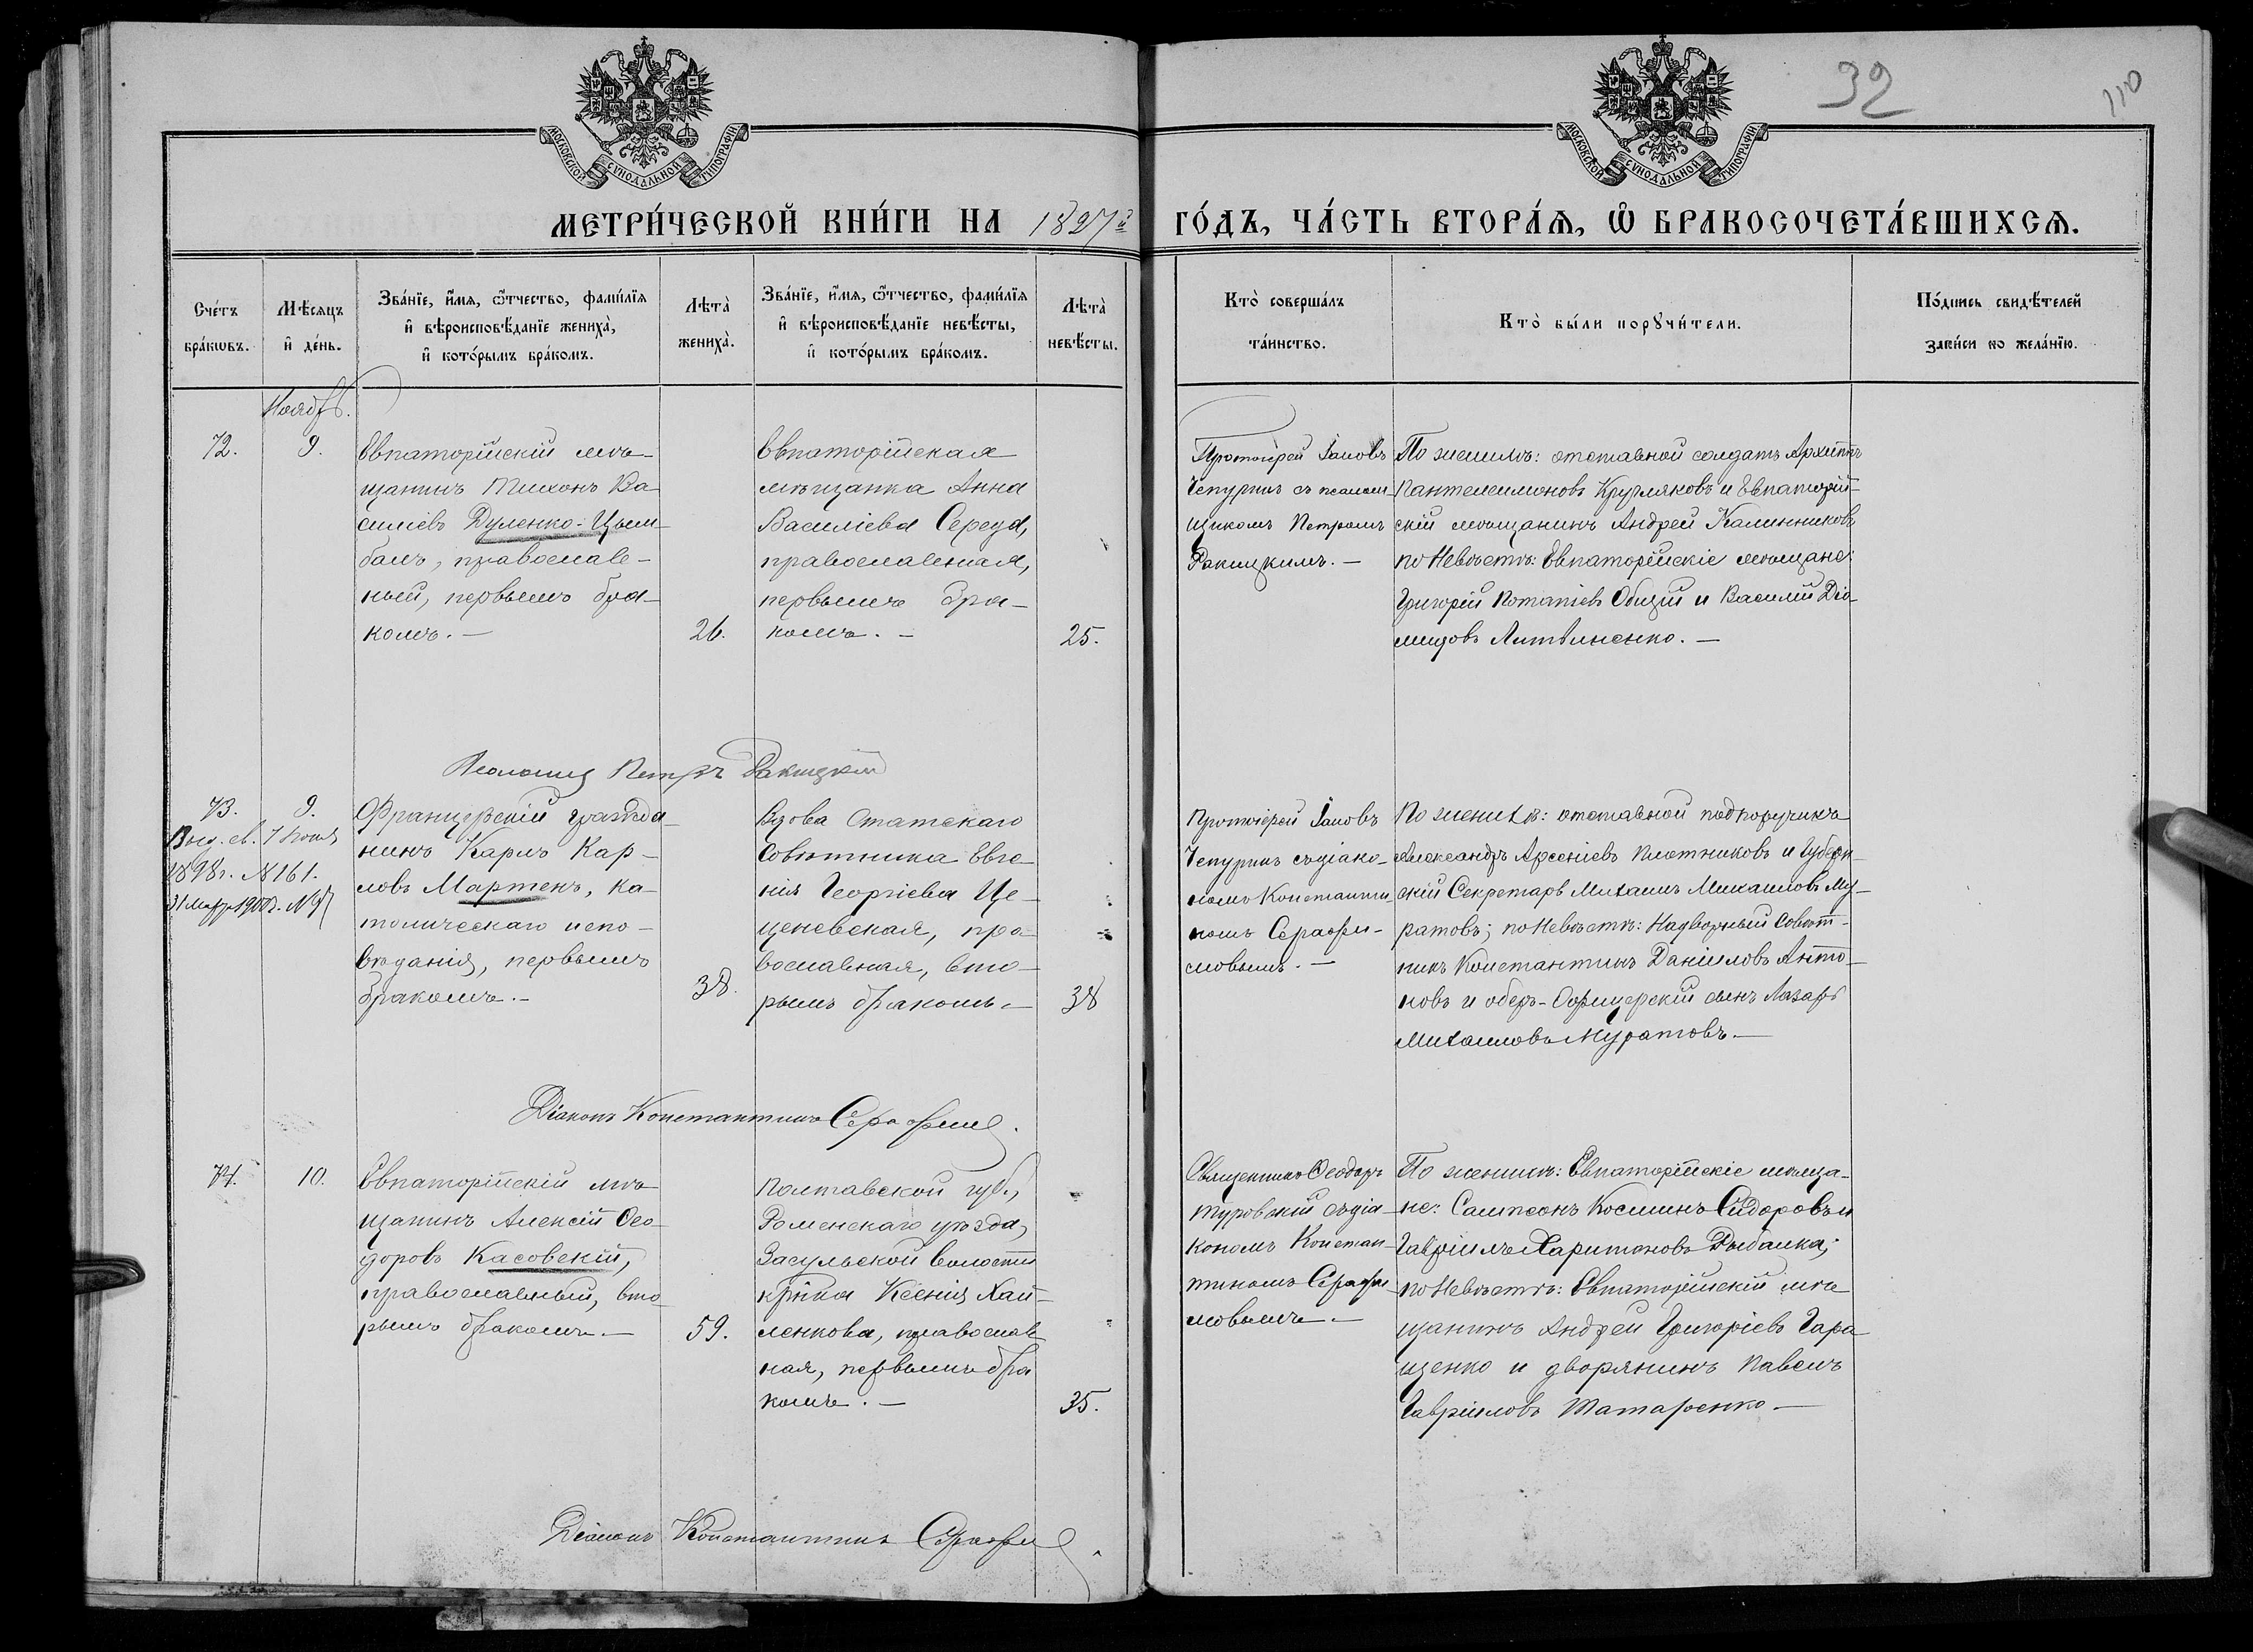 32
110
МОСКОВСКОЙ СѴНОДАЛЬНОЙ ТИПОГРАФІИ
МОСКОВСКОЙ СѴНОДАЛЬНОЙ ТИПОГРАФІИ
МЕТРИ́ЧЕСКОЙ КНИ́ГИ НА 1897й ГО́ДЪ, ЧА́СТЬ ВТОРА́Ѧ, Ѽ БРАКОСОЧЕТА́ВШИХСѦ.
Сче́тъ
бра́кѡвъ.
Мѣ́сяцъ
и҆ де́нь.
Зва́нїе, и҆́мѧ, ѻ҆́тчество, фами́лїѧ
и҆ вѣроисповѣ́данїе жениха̀,
и҆ кото́рымъ бра́комъ.
Лѣ́та̀
жениха̀.
Зва́нїе, и҆́мѧ, ѻ҆́тчество, фами́лїѧ
и҆ вѣроисповѣ́данїе невѣ́сты,
и҆ кото́рымъ бра́комъ.
Лѣ́та̀
невѣ́сты.
Кто̀ соверша́лъ
та́инство.
Кто̀ бы́ли порꙋчи́тели.
По́дпись свидѣ́телей
за́писи по жела́нїю.
Ноябрь.
72.
9.
Евпаторійскій мѣ-
щанинъ Тихонъ Ва-
силіевъ Дуленко-Цым-
балъ, православ-
ный, первымъ бра-
комъ. —
26.
Евпаторійская
мѣщанка Анна
Василіева Середа,
православная,
первымъ бра-
комъ. —
25.
Протоіерей Іаковъ
Чепуринъ съ псалом-
щикомъ Петромъ
Ракицкимъ. —
По женихѣ: отставной солдатъ Архиппъ
Пантелеимоновъ Кругляковъ и Евпаторій-
скій мѣщанинъ Андрей Калинниковъ
по Невѣстѣ: Евпаторійскіе мѣщане:
Григорій Потапіевъ Общій и Василій Діо-
мидовъ Литвиненко. —
Псаломщ Петръ Ракицкій
73.
9.
Выд. св. 7 Іюня
1898 г. № 161.
31 Мар. 1900 г. №
Французскій гражда-
нинъ Карлъ Кар-
ловъ Мартенъ, ка-
толическаго испо-
вѣданія, первымъ
бракомъ. —
38.
Вдова Статскаго
Совѣтника Евге-
нія Георгіева Це-
ценевская, пра-
вославная, вто-
рымъ бракомъ. —
38
Протоіерей Іаковъ
Чепуринъ съ діако-
номъ Константи-
номъ Серафи-
мовымъ. —
По женихѣ: отставной подпоручикъ
Александръ Арсеніевъ Плотниковъ и Губерн-
скій Секретарь Михаилъ Михаиловъ Му-
ратовъ; по Невѣстѣ: Надворный Совѣт-
никъ Константинъ Даніиловъ Анто-
новъ и оберъ-Офицерскій сынъ Лазарь
Михаиловъ Муратовъ. —
Діаконъ Константинъ Серафим
74.
10.
Евпаторійскій мѣ-
щанинъ Алексій Ѳео-
доровъ Касовскій,
православный, вто-
рымъ бракомъ. —
59.
Полтавской губ.,
Роменскаго уѣзда,
Засульской волости
кр҃нка Ксенія Хай-
ленкова, православ-
ная, первымъ бра
комъ. —
35.
Священникъ Ѳеодоръ
Туровскій съ діа-
кономъ Констан-
тиномъ Серафи-
мовымъ. —
По женихѣ: Евпаторійскіе мѣща-
не: Сампсонъ Косминъ Сидоровъ и
Гавріилъ Харитоновъ Рыбалка;
по Невѣстѣ: Евпаторійскій мѣ
щанинъ Андрей Григоріевъ Гара
щенко и дворянинъ Павелъ
Гавріиловъ Татаренко —
Діаконъ Константинъ Серафим